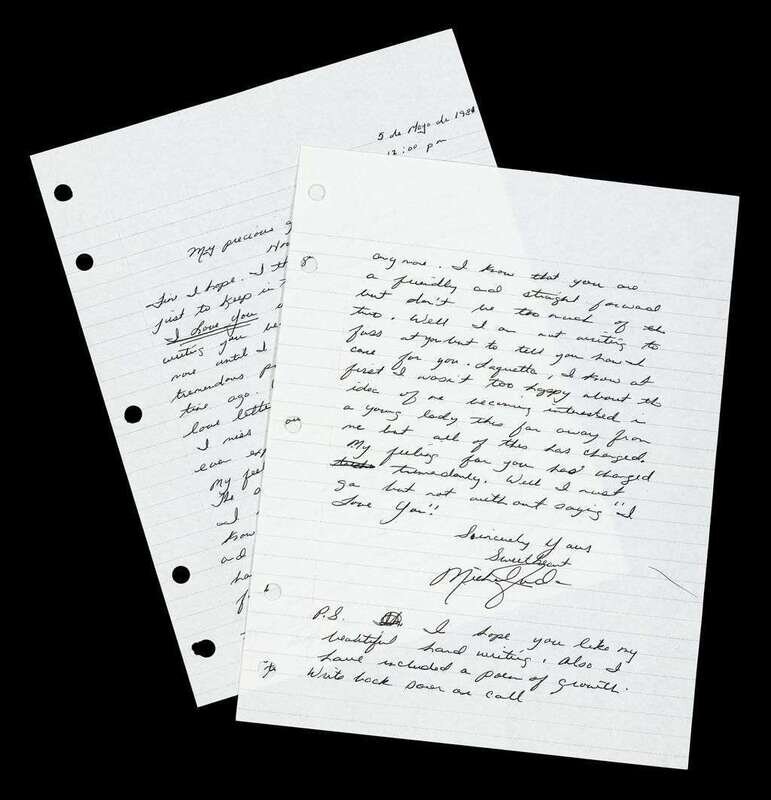 5 de Mayo de 1981
12:00 pm
My precious
Fine I hope. I th
just to keep in
I Love You
writing you be
now until I
tremendous p
time ago.
love lette
I miss
even exp
My feel
The
and
know
and
ha
f
any more. I know that you are
a friendly and straight forward
but don't be too much of the
two. Well I am not writing to
fuss at you but to tell you how I
care for you. Laquetta, I know at
first I wasn't too happy about the
idea of me becoming interested in
a young lady this far away from
me but all of this has changed.
My feeling for you has changed
tremendously. Well I must
go but not without saying "I
Love You"!
Sincerely Yours
Sweetheart
P.S. I hope you like my
beautiful hand writing. Also I
have included a poem of growth.
Write back soon or call